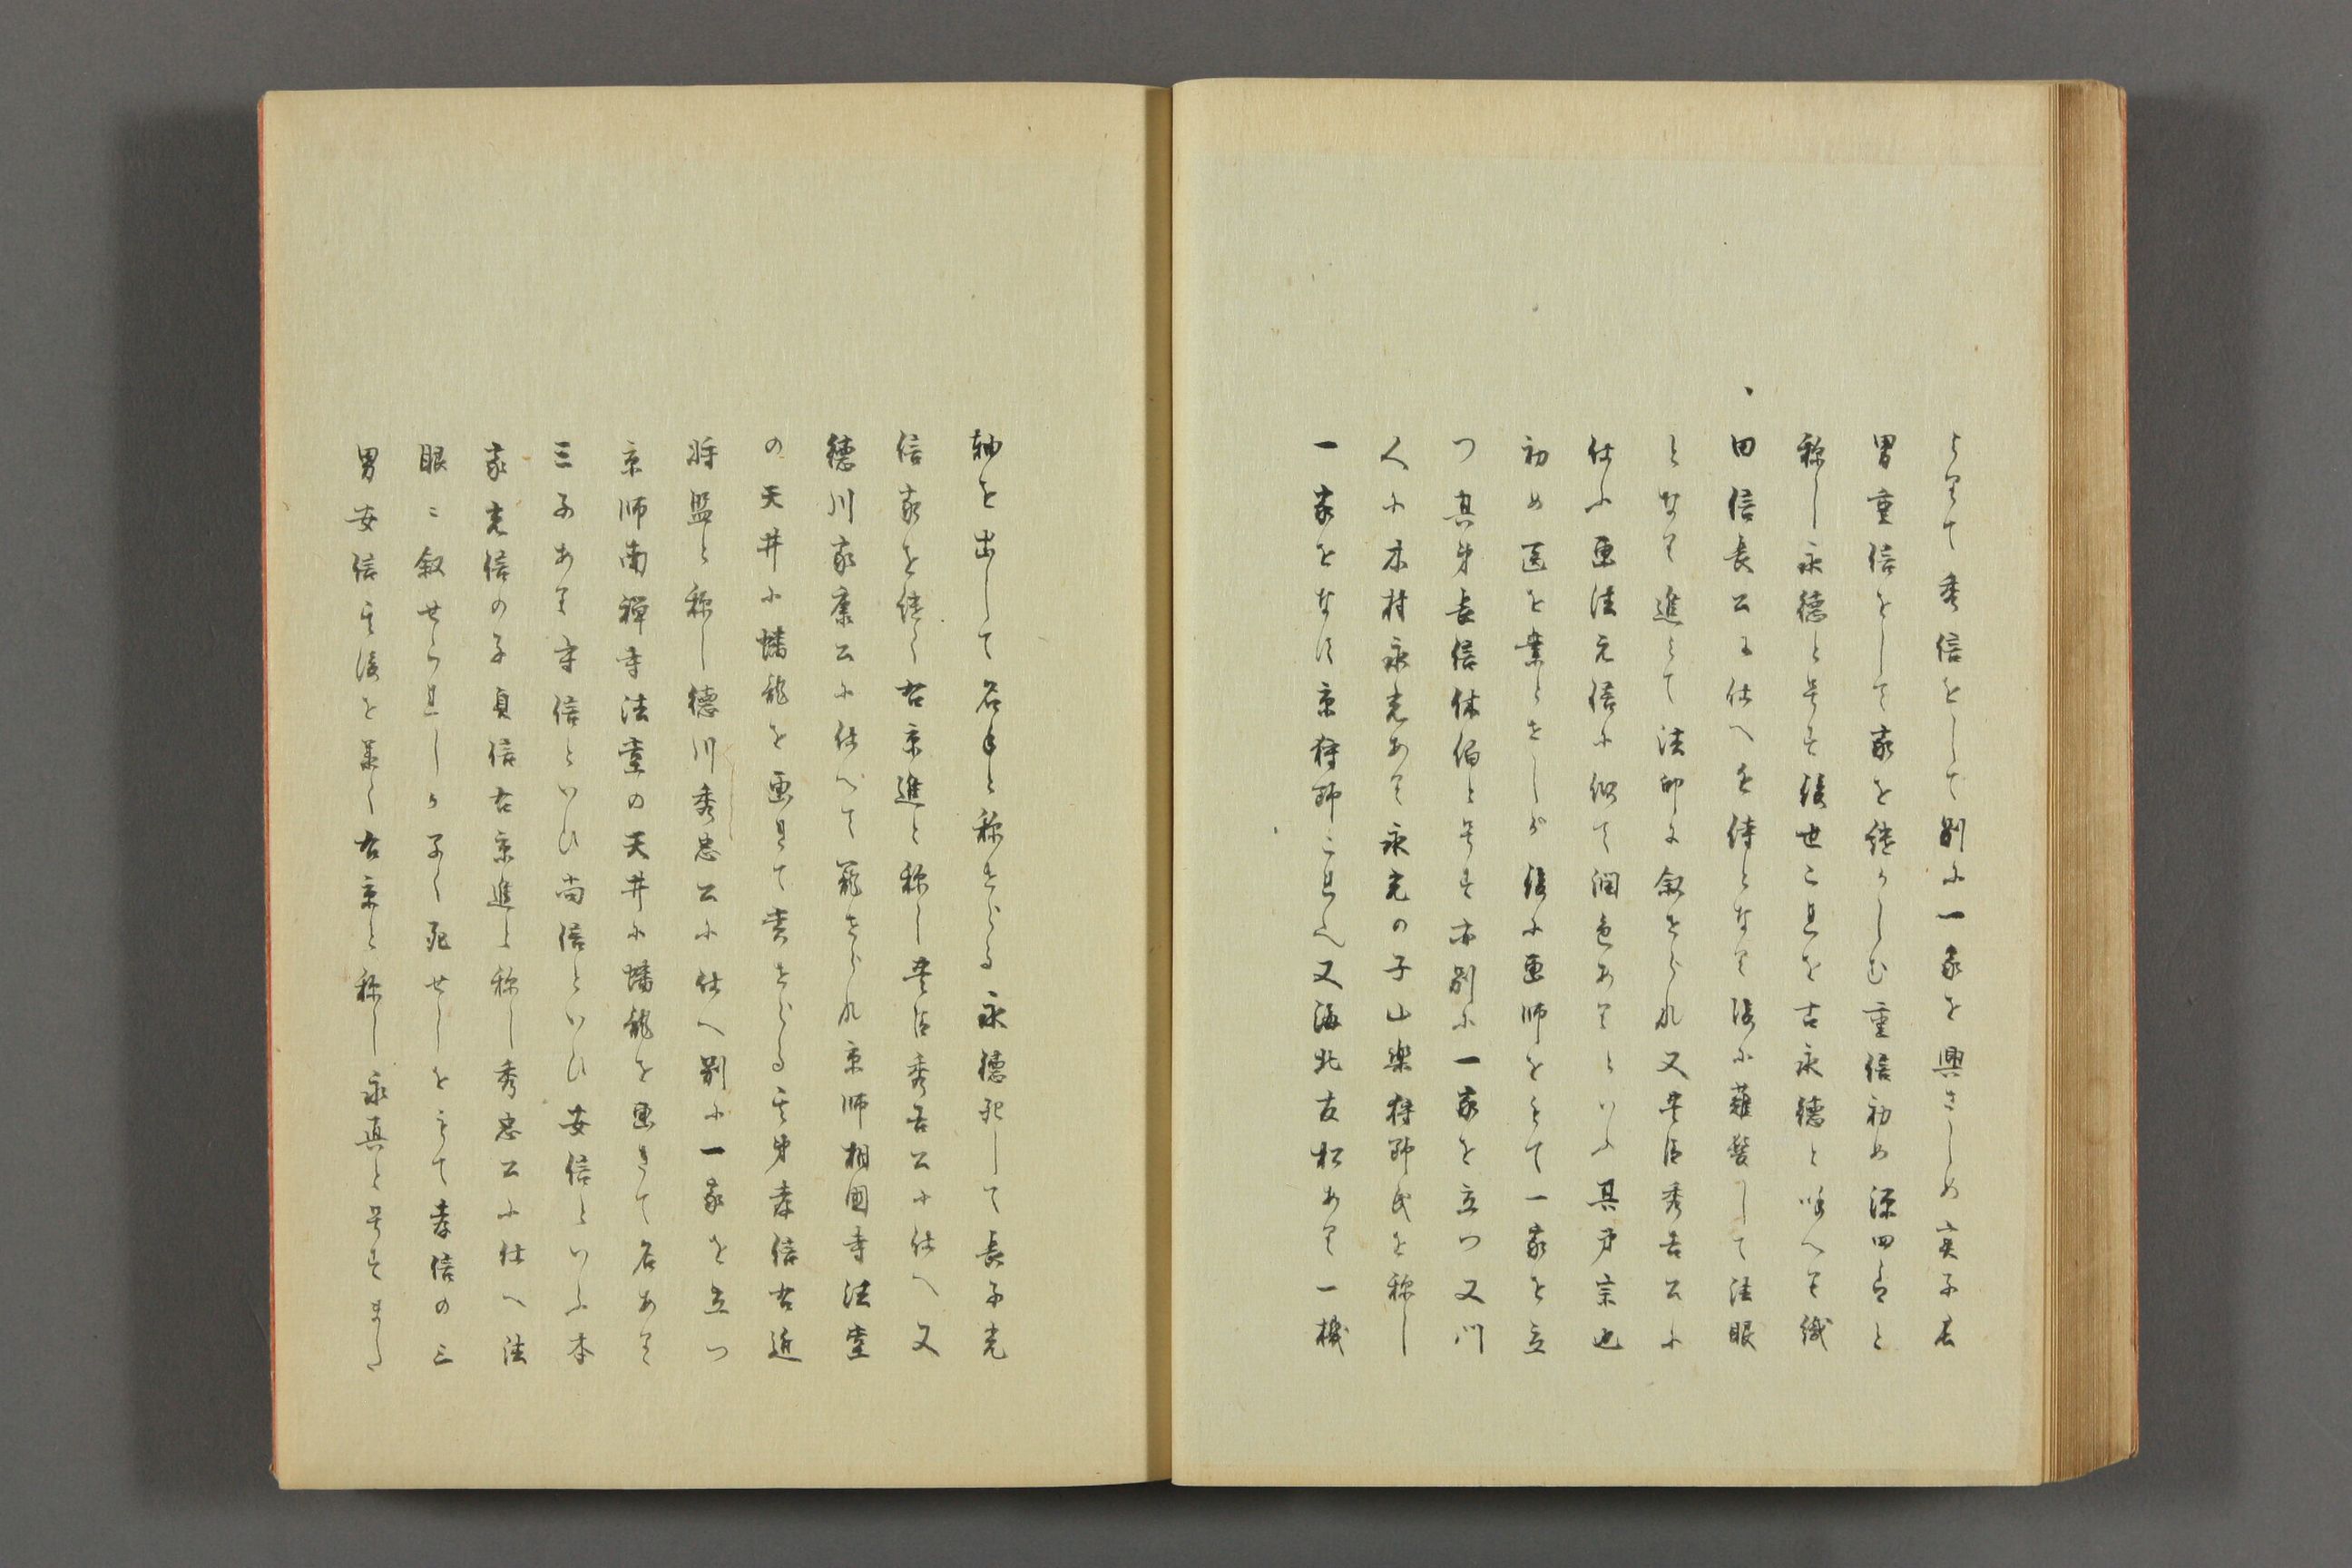 よりて秀信をして別に一家を興さしめ実子長
男重信をして家を継かしむ重信初め源四郎と
称し永徳と号す後世これを古永徳と唱へり織
田信長公に仕へを侍となり後に薙髪して法眼
となり進みて法印に叙せられ又豊臣秀吉公に
仕ふ画法元信に似て潤色ありといふ其弟宗也
初め医を業とせしが後に画師をもて一家を立
つ其弟長信休伯と号す亦別に一家を立つ又門
人に木村永光あり永光の子山楽狩野氏を称し
一家をなす京狩野これ也又海北友松あり一機
軸を出して名手と称せらる永徳死して長子光
信家を継く右京進と称し豊臣秀吉公に仕へ又
徳川家康公に仕へて寵せられ京師相国寺法堂
の天井に蟠龍を画きて賞せらる其弟孝信右近
将監と称し徳川秀忠公に仕へ別に一家を立つ
京師南禅寺法堂の天井に蟠龍を画きて名あり
三子あり守信といひ尚信といひ安信といふ本
家光信の子貞信右京進と称し秀忠公に仕へ法
眼に叙せられしか早く死せしをもて孝信の三
男安信其後を業く右京と称し永真と号すまた